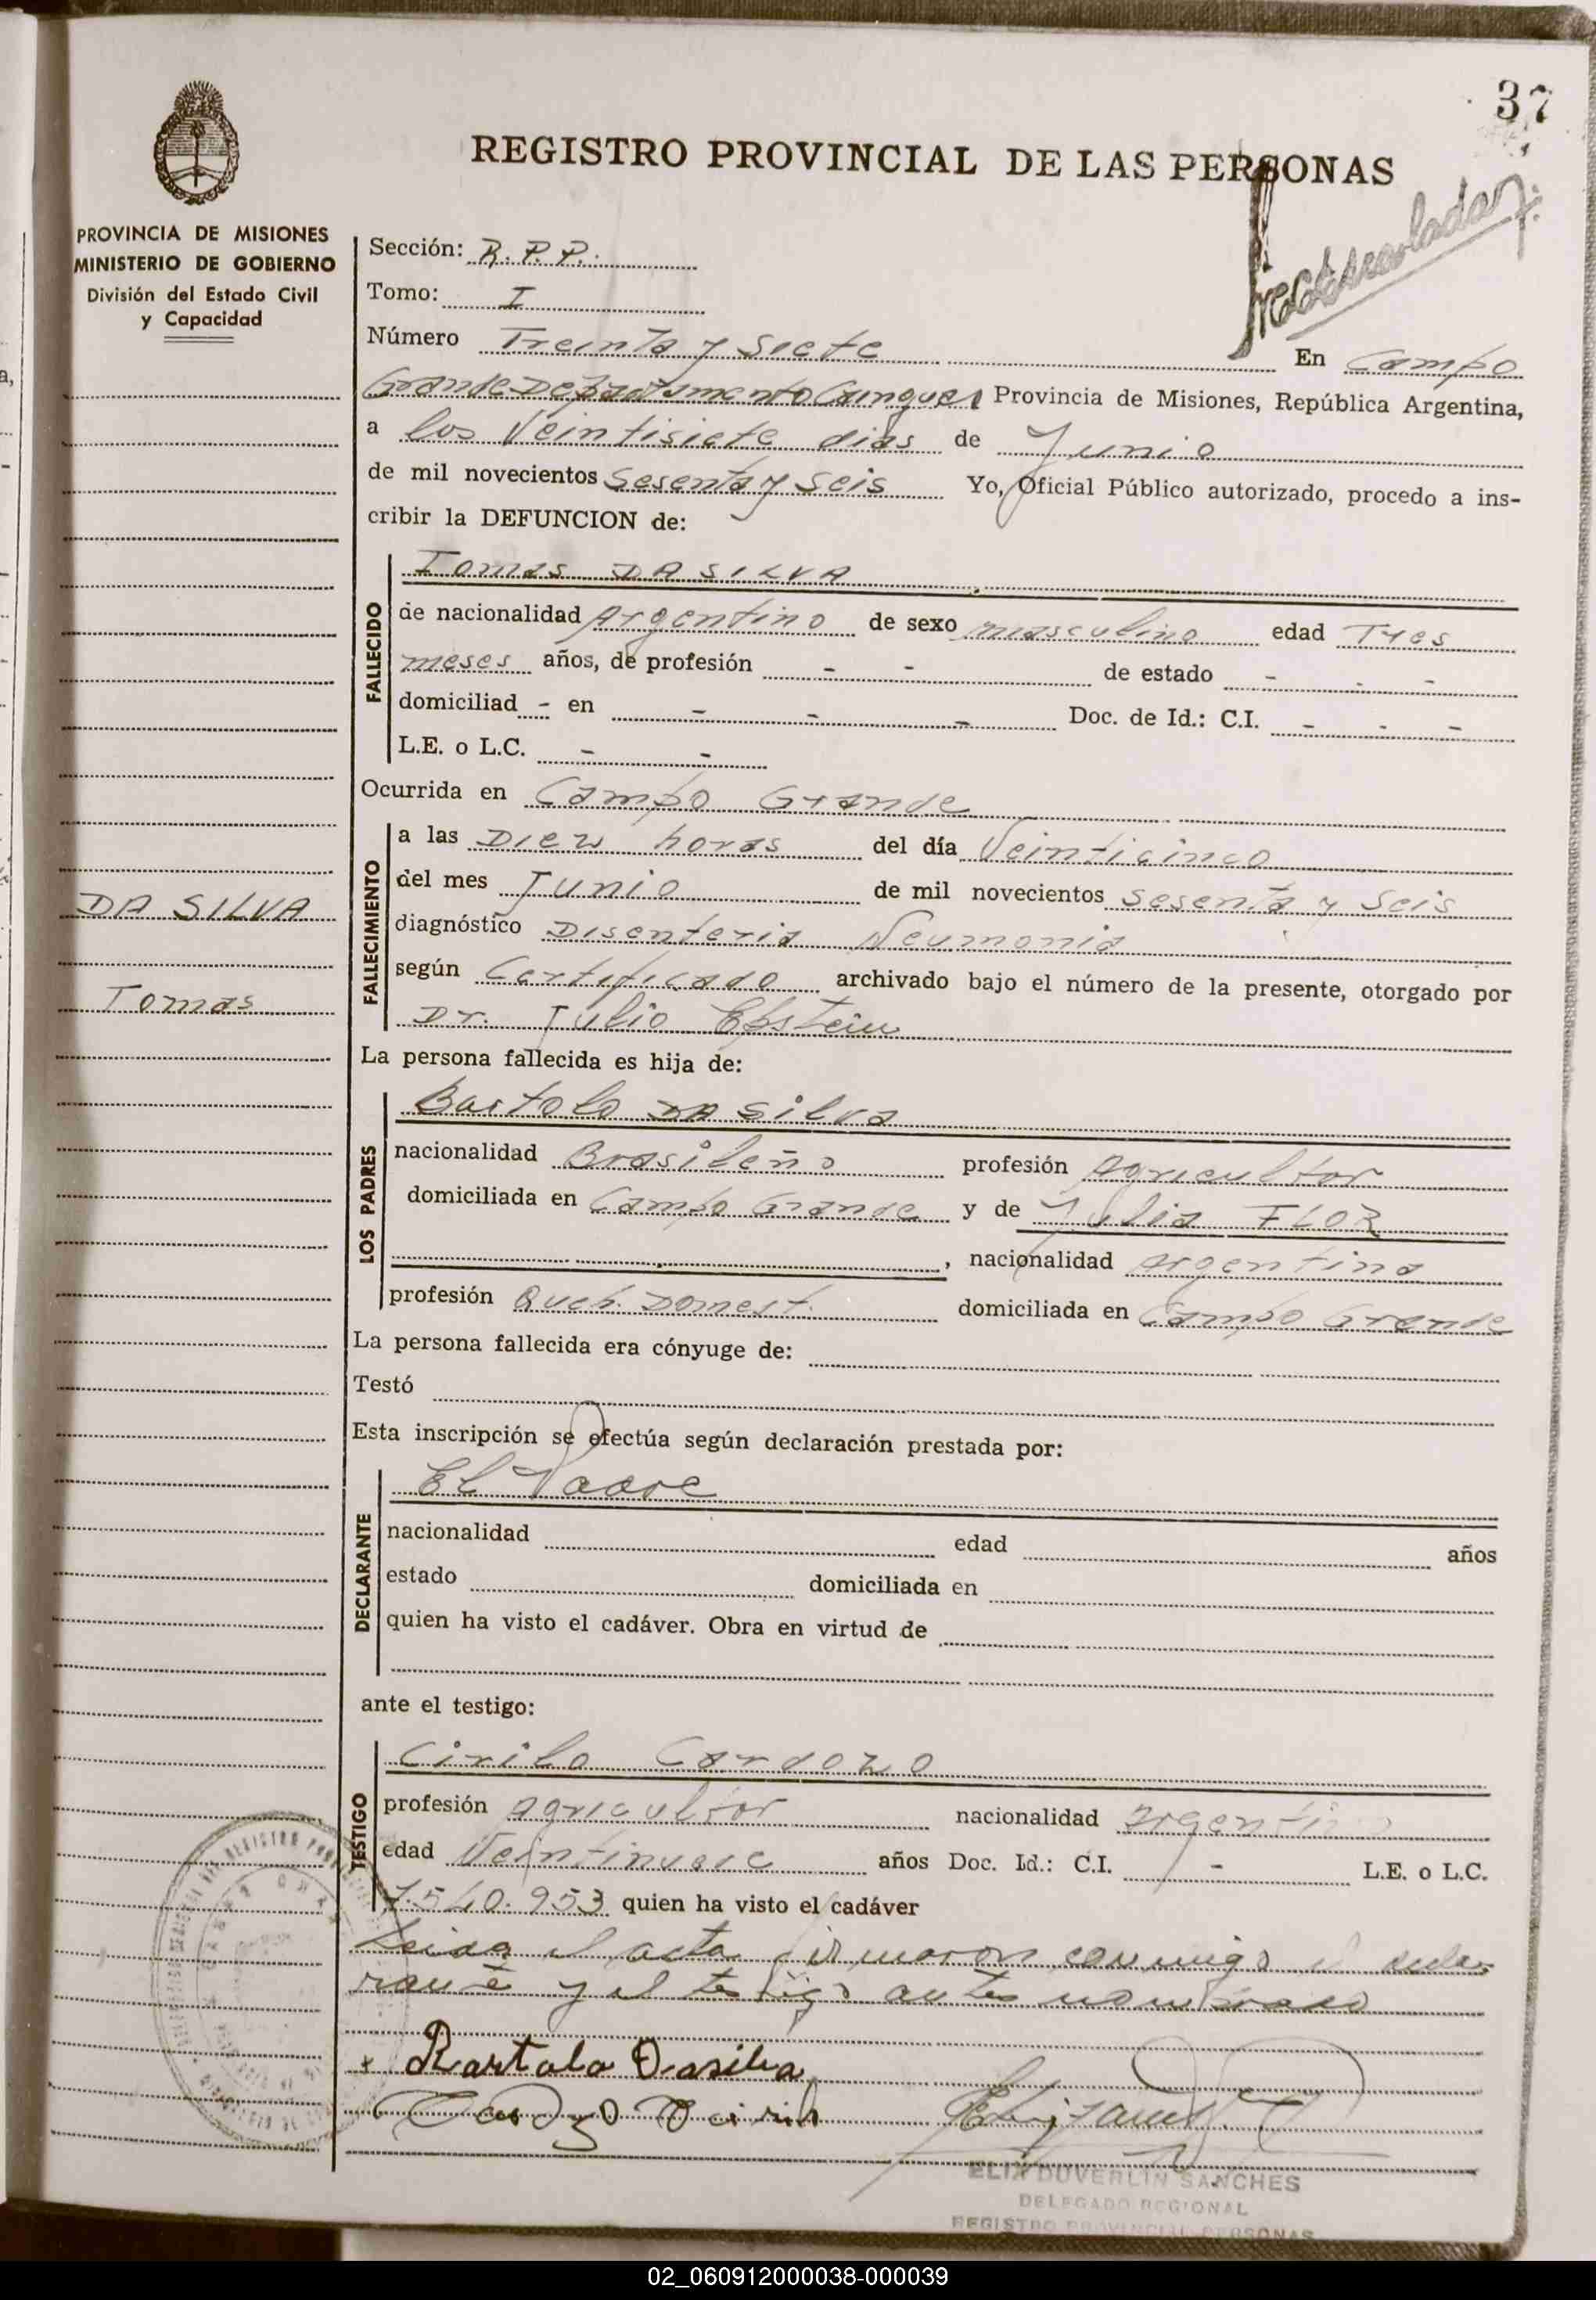 37
REGISTRO PROVINCIAL DE LAS PERSONAS
PROVINCIA DE MISIONES
MINISTERIO DE GOBIERNO
División del Estado Civil
y Capacidad
Sección: R.P.P.
Tomo: I
Número Treinta y Siete En Campo
Grande Departamento Cainguas Provincia de Misiones, República Argentina,
a los Veintisiete dias de Junio
de mil novecientos Sesenta y Seis Yo, Oficial Público autorizado, procedo a ins-
cribir la DEFUNCION de:
FALLECIDO
Tomas DA SILVA
de nacionalidad Argentino de sexo masculino edad Tres
meses años, de profesión - - de estado - - -
domiciliad - en - - - Doc. de Id.: C.I. - - -
L.E. o L.C. - -
Ocurrida en Campo Grande
FALLECIMIENTO
a las Diez horas del día Veinticinco
del mes Junio de mil novecientos Sesenta y Seis
diagnóstico Disenteria Neumonia
según Certificado archivado bajo el número de la presente, otorgado por
Dr. Julio Epstein
DA SILVA
Tomas
La persona fallecida es hija de:
LOS PADRES
Bartolo DA Silva
nacionalidad Brasileño profesión Agricultor
domiciliada en Campo Grande y de Julia FLOR
, nacionalidad Argentina
profesión Queh. Domest. domiciliada en Campo Grande
La persona fallecida era cónyuge de:
Testó
Esta inscripción se efectúa según declaración prestada por:
DECLARANTE
El Padre
nacionalidad edad años
estado domiciliada en
quien ha visto el cadáver. Obra en virtud de
ante el testigo:
TESTIGO
Cirilo Cardozo
profesión Agricultor nacionalidad argentino
edad Veintinueve años Doc. Id.: C.I. - L.E. o L.C.
7.540.953 quien ha visto el cadáver
Leida el acta firmaron conmigo el decla-
rante y el testigo antes nombrado
+ Bartolo Dasilva
Cardozo Cirilo
ELIX DUVERLIN SANCHES
DELEGADO REGIONAL
REGISTRO PROVINCIAL PERSONAS
02_060912000038-000039